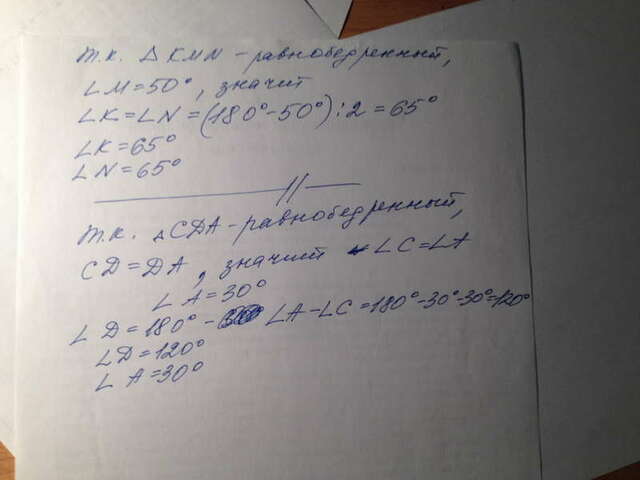 т.к. △ KMN - равнобедренный,
∠M=50°, значит
∠K=∠N=(180°-50°):2=65°
∠K=65°
∠N=65°
т.к. △CDA-равнобедренный,
CD=DA, значит ∠C=∠A
∠A=30°
∠D=180°- ∠A-∠C=180°-30°-30°=120°
∠D=120°
∠A=30°